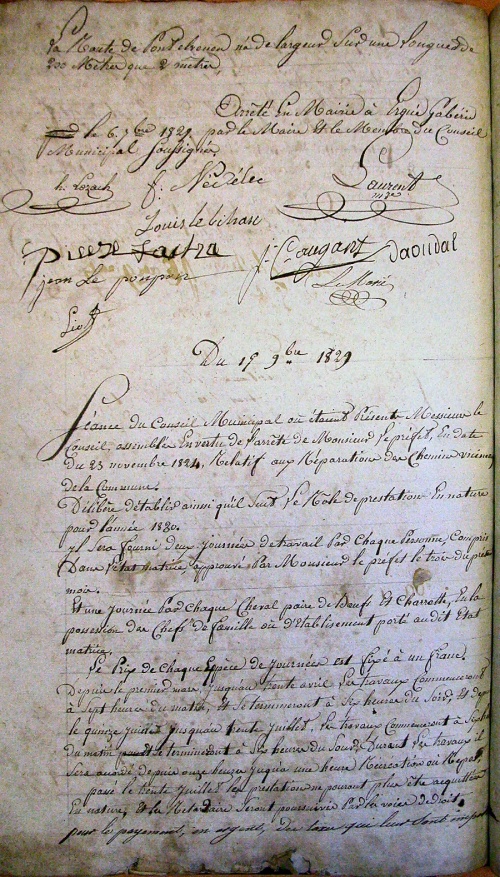 La Route de
de largeur Sur une Longueur de
200 Mètres que 2 metres
Arrêté En Mairie à Ergué Gabéric
le 6. 1829 par le Maire Et le Membre du Conseil
Municipal Soussigner.
h. Lozach f. Nédélec Laurent
Louis le bihan
jean Le Daoudal
Du 15 9bre 1829
Séance du Conseil Municipal où étaient Présents Messieurs le
Conseil, assemblé En vertu de l'arrêté de Monsieur Le préfet, En date
du 23 novembre 1824, Relatif aux Réparation des Chemin vicinaux
de la Commune.
Délibère d'établir ainsi qu'il Suit Le Role de prestation En nature
pour l'année 1830.
yl Sera fourni deux Journée de travail Par Chaque Personne, Compris
Dans L'état matrice approuvé Par Monsieur le prefet le trois du présent
mois.
Et une Journée Par Chaque Cheval paire de Boeufs Et Charrette, En la
possession des Chefs de famille ou d'Etablisement porté audit Etat
matrice.
Le Prix de Chaque Espèce de Journée est fixé à un franc.
Depuis le premier mars Jusqu'au trente avril les travaux Commenceront
à Sept heures du matin, et Se termineront à Six heures du Soir, Et depuis
le quinze Juillet Jusqu'au trente Juillet, les travaux Commenceront à Six heures
du matin Se termineront à Six heures du Soir. Durant les travaux il
Sera accordé, depuis onze heures Jusqu'à une heure Recreation ou Repos,
passé le trente Juillet les prestation ne pourront plus être acquittées
En nature, et les Retardataire Seront poursuivies Par la voie de droit
pour le payement, en argent, des taxes qui leur Sont